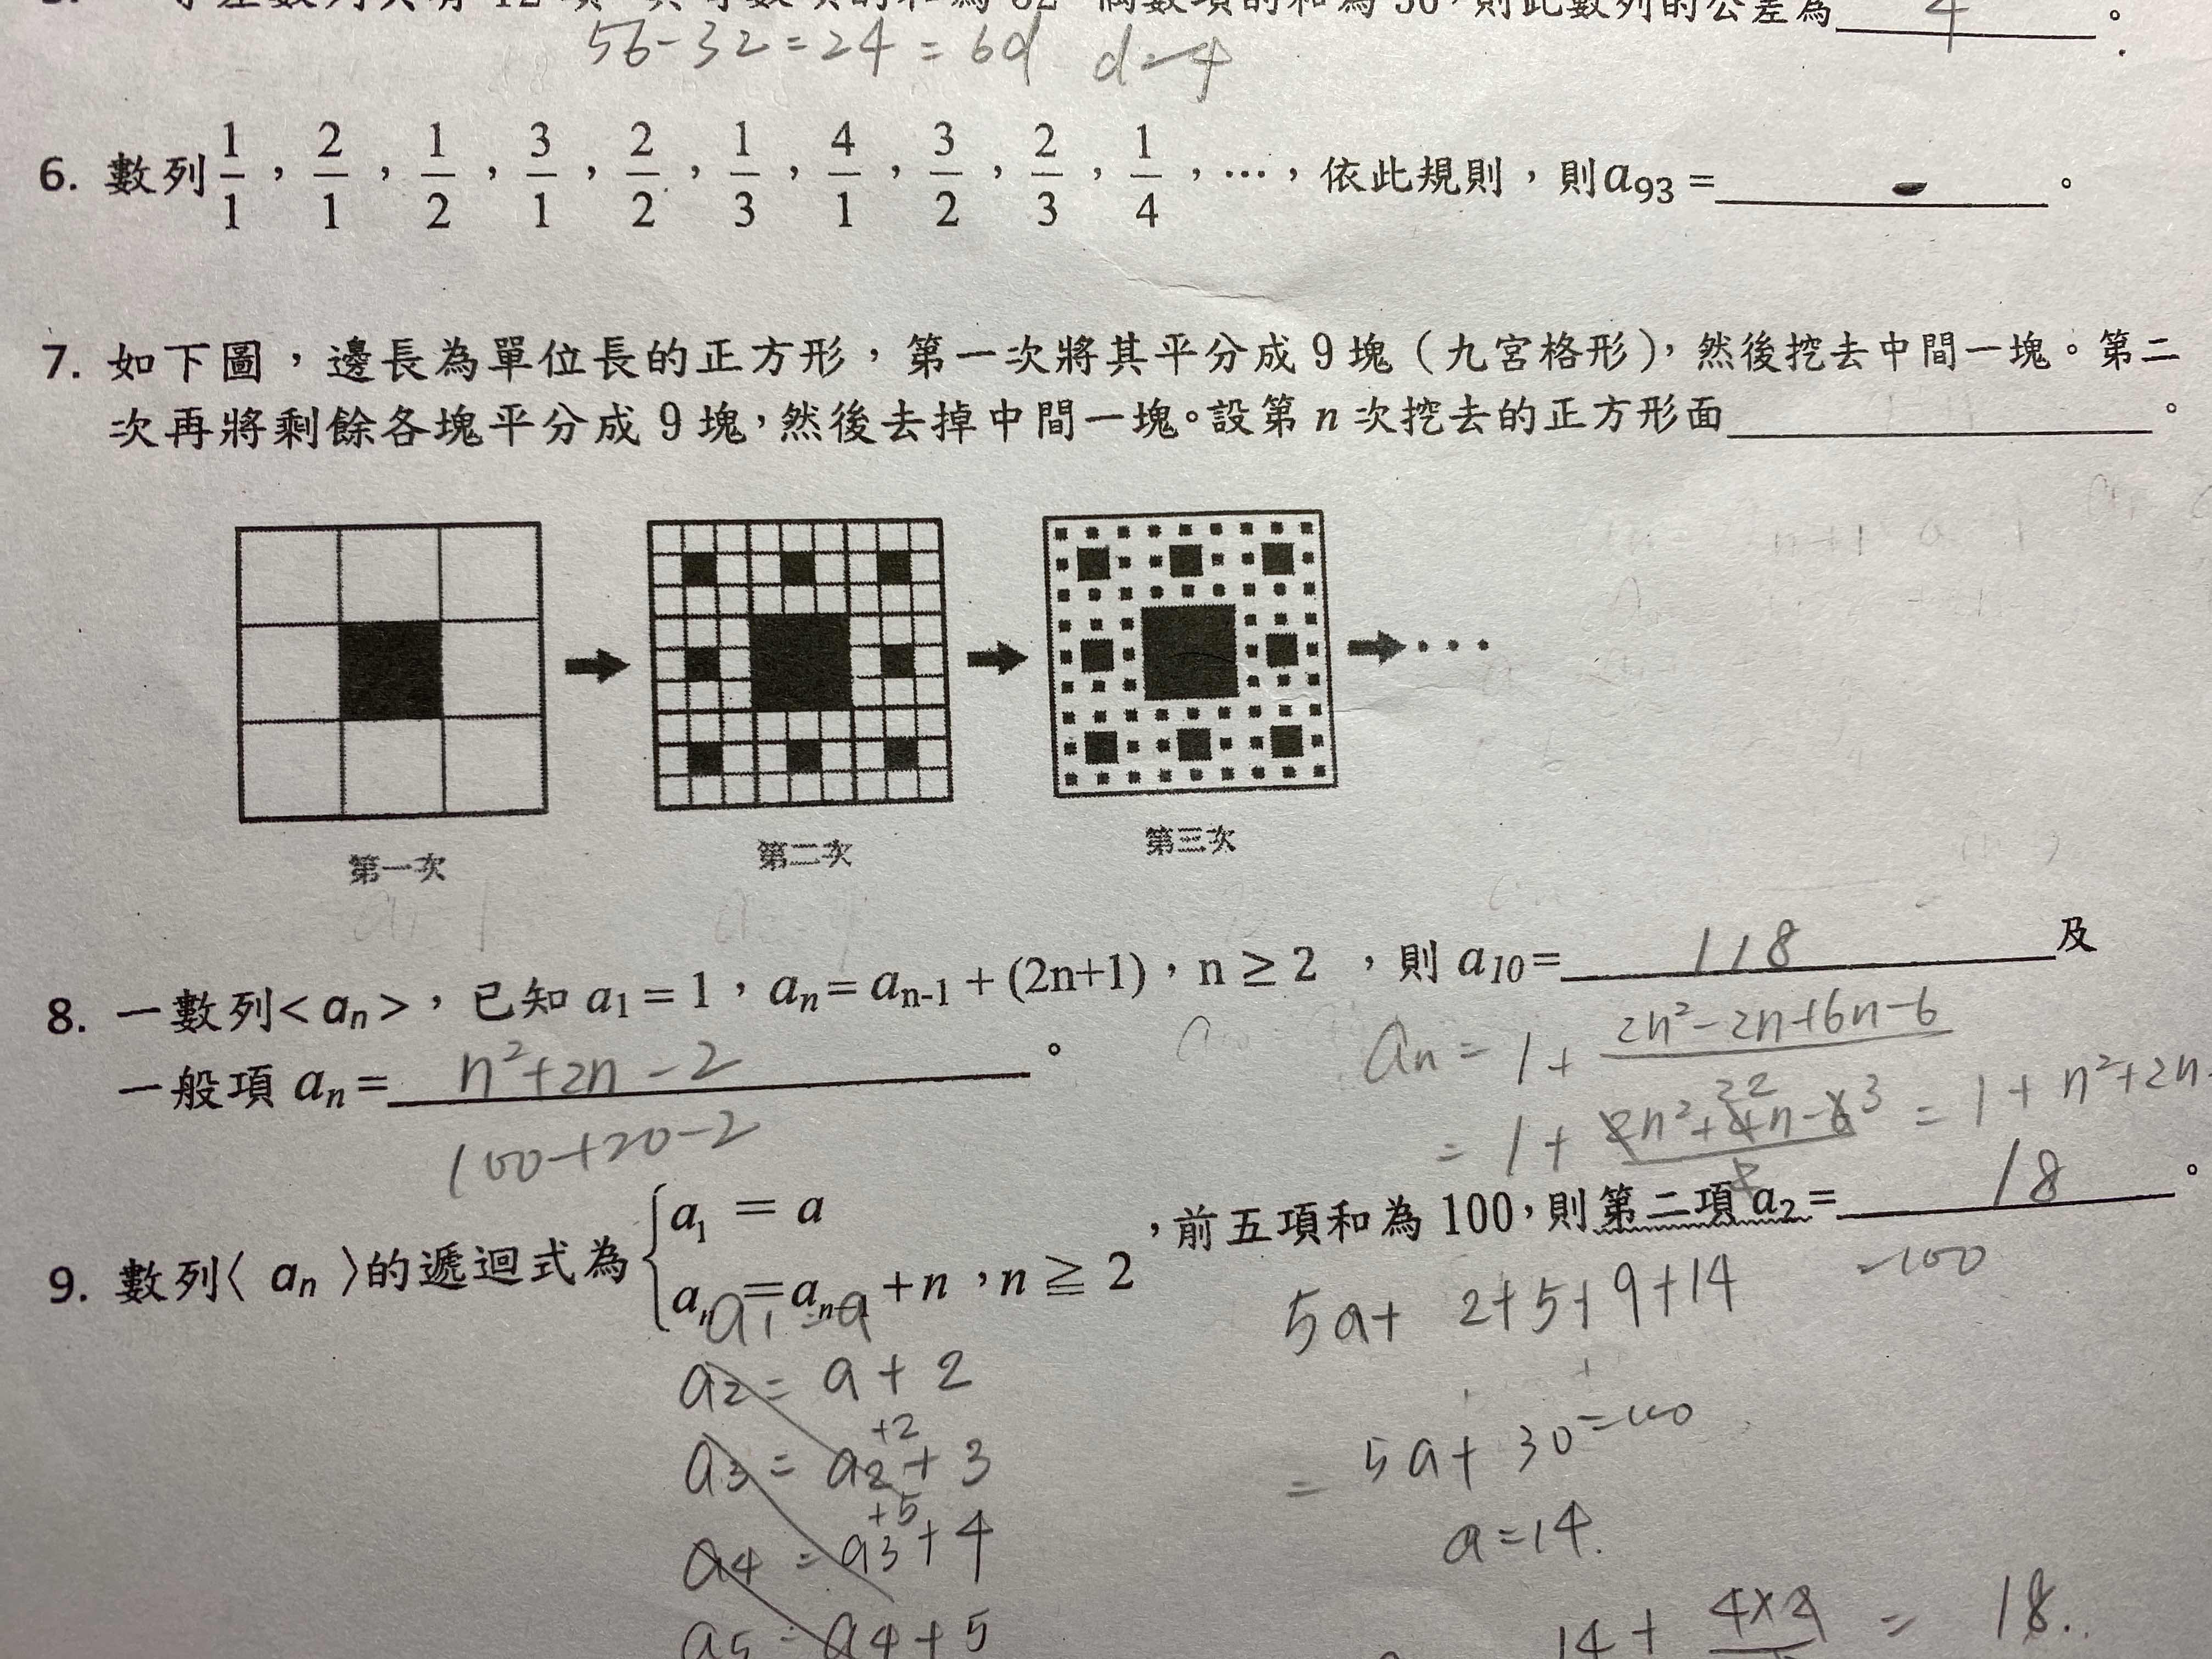 數列共有 12 項 其奇數項的和為 32 偶數項的和為 56,則此數列的公差為 4 。
56-32=24=6d d=4
6. 數列 1/1 , 2/1 , 1/2 , 3/1 , 2/2 , 1/3 , 4/1 , 3/2 , 2/3 , 1/4 ,…,依此規則,則a₉₃= - 。
7. 如下圖,邊長為單位長的正方形,第一次將其平分成 9 塊(九宮格形),然後挖去中間一塊。第二
次再將剩餘各塊平分成 9 塊,然後去掉中間一塊。設第 n 次挖去的正方形面 。
第一次 第二次 第三次
8. 一數列< aₙ >,已知 a₁ = 1,aₙ = aₙ₋₁ + (2n+1),n ≥ 2 ,則 a₁₀= 118 及
一般項 aₙ= n²+2n-2 。
aₙ = 1 + 2n²-2n+6n-6
100+20-2
= 1 + 2n²+4n-6 = 1 + n²+2n
9. 數列〈 aₙ 〉的遞迴式為 { a₁ = a
aₙ = aₙ₋₁ + n ,n ≧ 2 ,前五項和為 100,則第二項 a₂= 18 。
a₁ = a
5a+ 2+5+9+14 =100
a₂ = a + 2
+2
a₃ = a₂ + 3
5a+ 30=100
=
+5
a₄ = a₃ + 4
a=14.
a₅ = a₄ + 5
14 + 4×2 = 18.